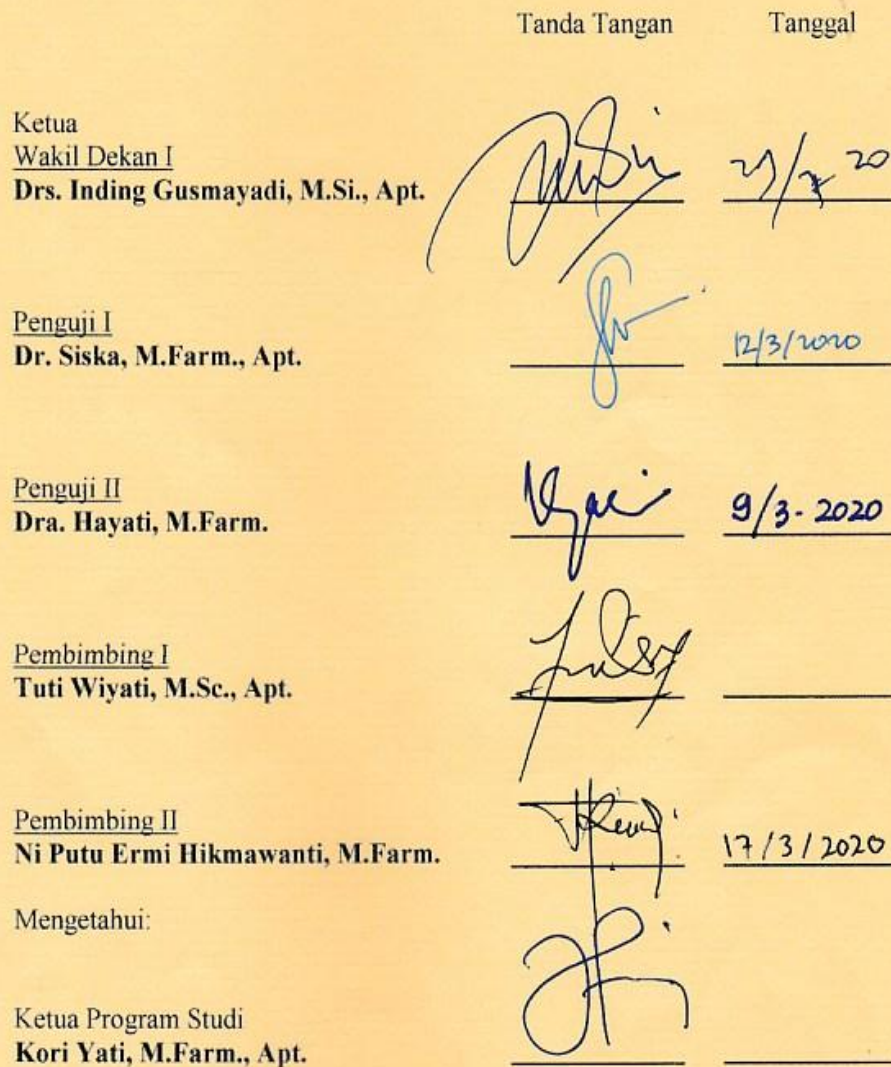 Tanda Tangan Tanggal
Ketua
Wakil Dekan I
Drs. Inding Gusmayadi, M.Si., Apt. 20
Penguji I
Dr. Siska, M.Farm., Apt. 12/3/2020
Penguji II
Dra. Hayati, M.Farm. 9/3-2020
Pembimbing I
Tuti Wiyati, M.Sc., Apt.
Pembimbing II
Ni Putu Ermi Hikmawanti, M.Farm. 17/3/2020
Mengetahui:
Ketua Program Studi
Kori Yati, M.Farm., Apt.